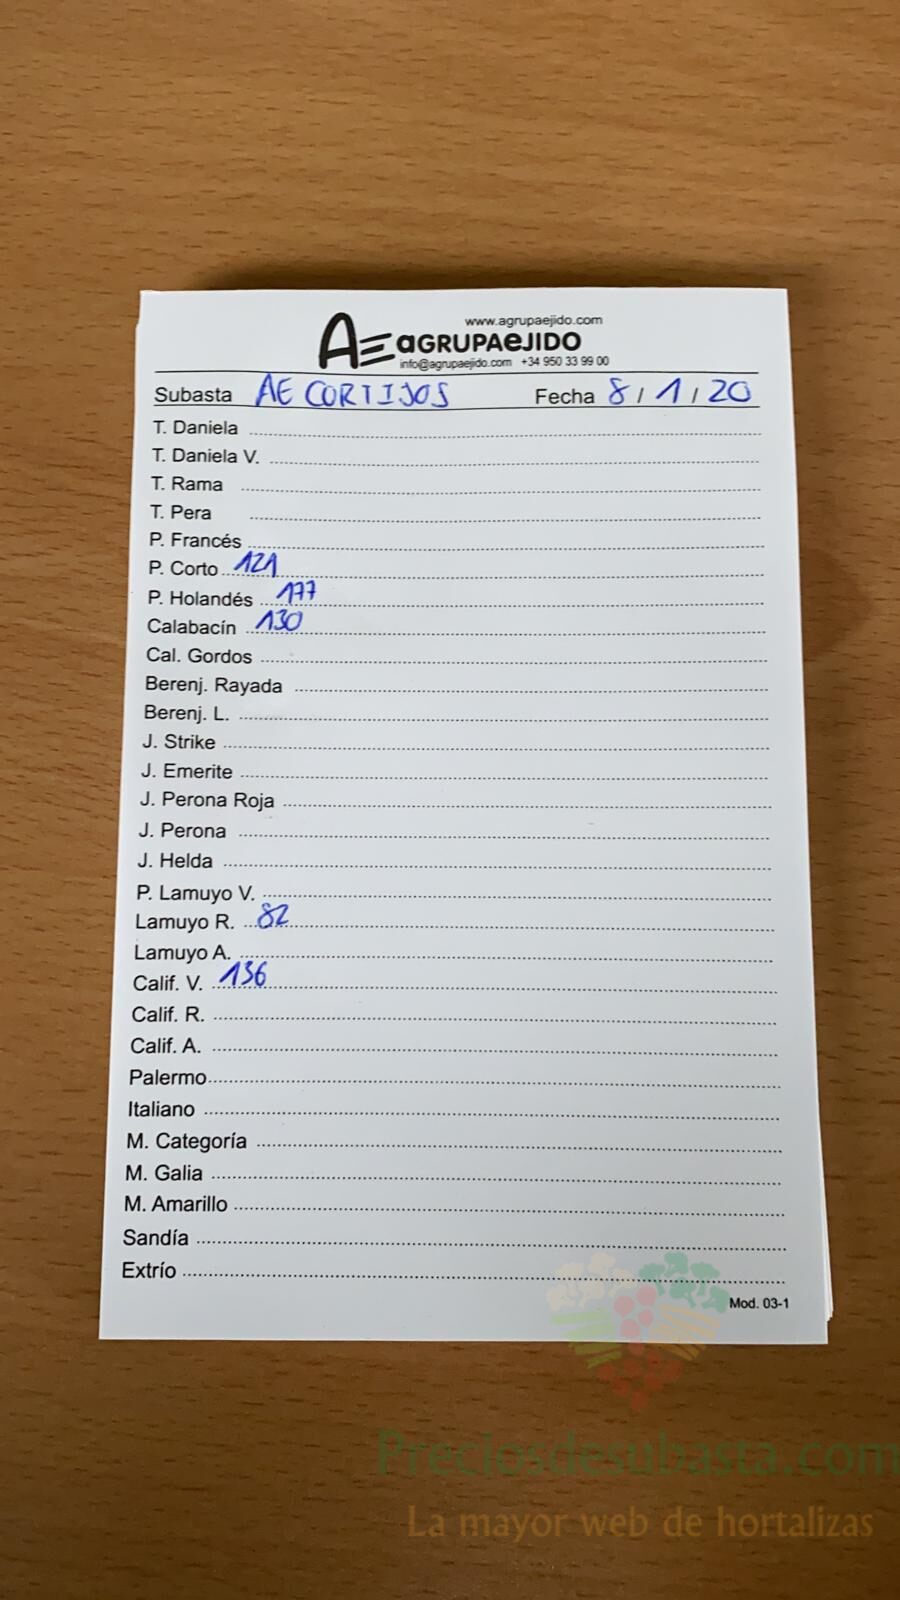 www.agrupaejido.com
AE aGRUPAeJIDO
info@agrupaejido.com +34 950 33 99 00
Subasta AE CORTIJOS Fecha 8 / 1 / 20
T. Daniela
T. Daniela V.
T. Rama
T. Pera
P. Francés
P. Corto 121
P. Holandés 177
Calabacín 130
Cal. Gordos
Berenj. Rayada
Berenj. L.
J. Strike
J. Emerite
J. Perona Roja
J. Perona
J. Helda
P. Lamuyo V.
Lamuyo R. 82
Lamuyo A.
Calif. V. 136
Calif. R.
Calif. A.
Palermo
Italiano
M. Categoría
M. Galia
M. Amarillo
Sandía
Extrío
Mod. 03-1
Preciosdesubasta.com
La mayor web de hortalizas